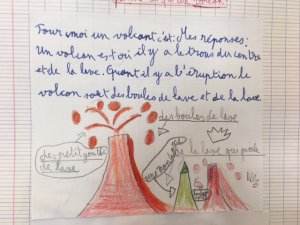 Pour moi un volcan c'est: Mes réponses:
Un volcan est où il y a le trous du centre
et de la lave. Quant il y a l'éruption le
volcan sort des boules de lave et de la lave.
des boules de lave
des petit goutte
de lave
de la lave qui coule